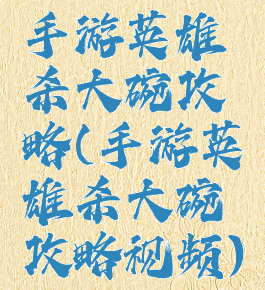 手游英雄
杀大碗攻
略(手游英
雄杀大碗
攻略视频)